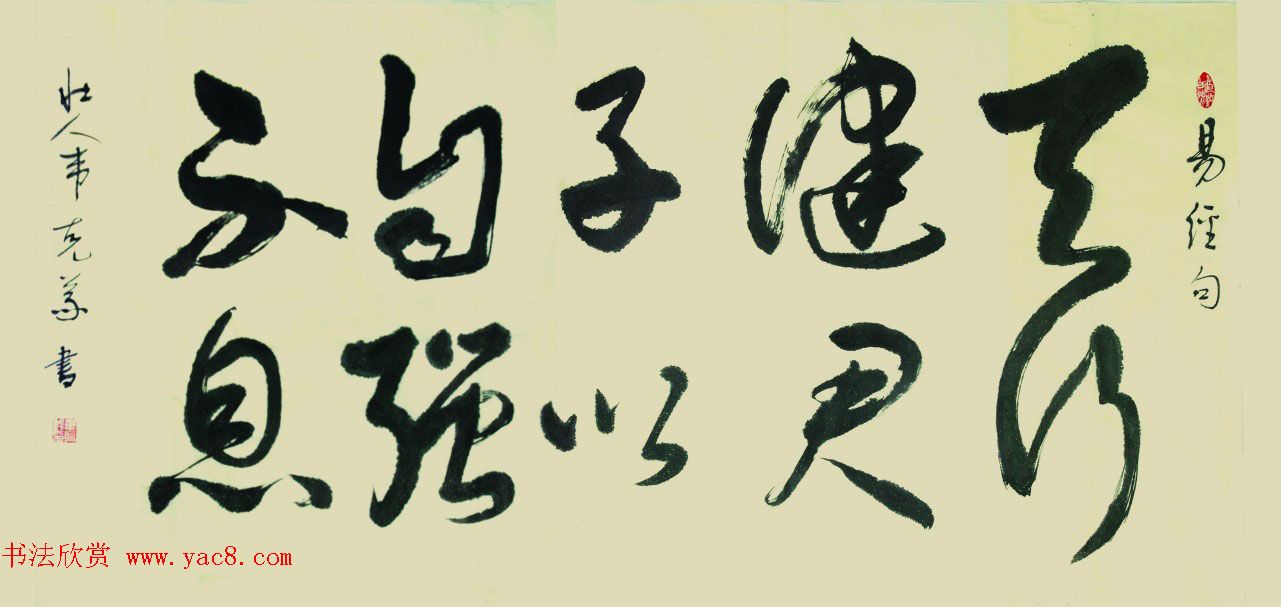 易經句
天行
健君
子以
自强
不息
壮人韦克义書
书法欣赏 www.yac8.com